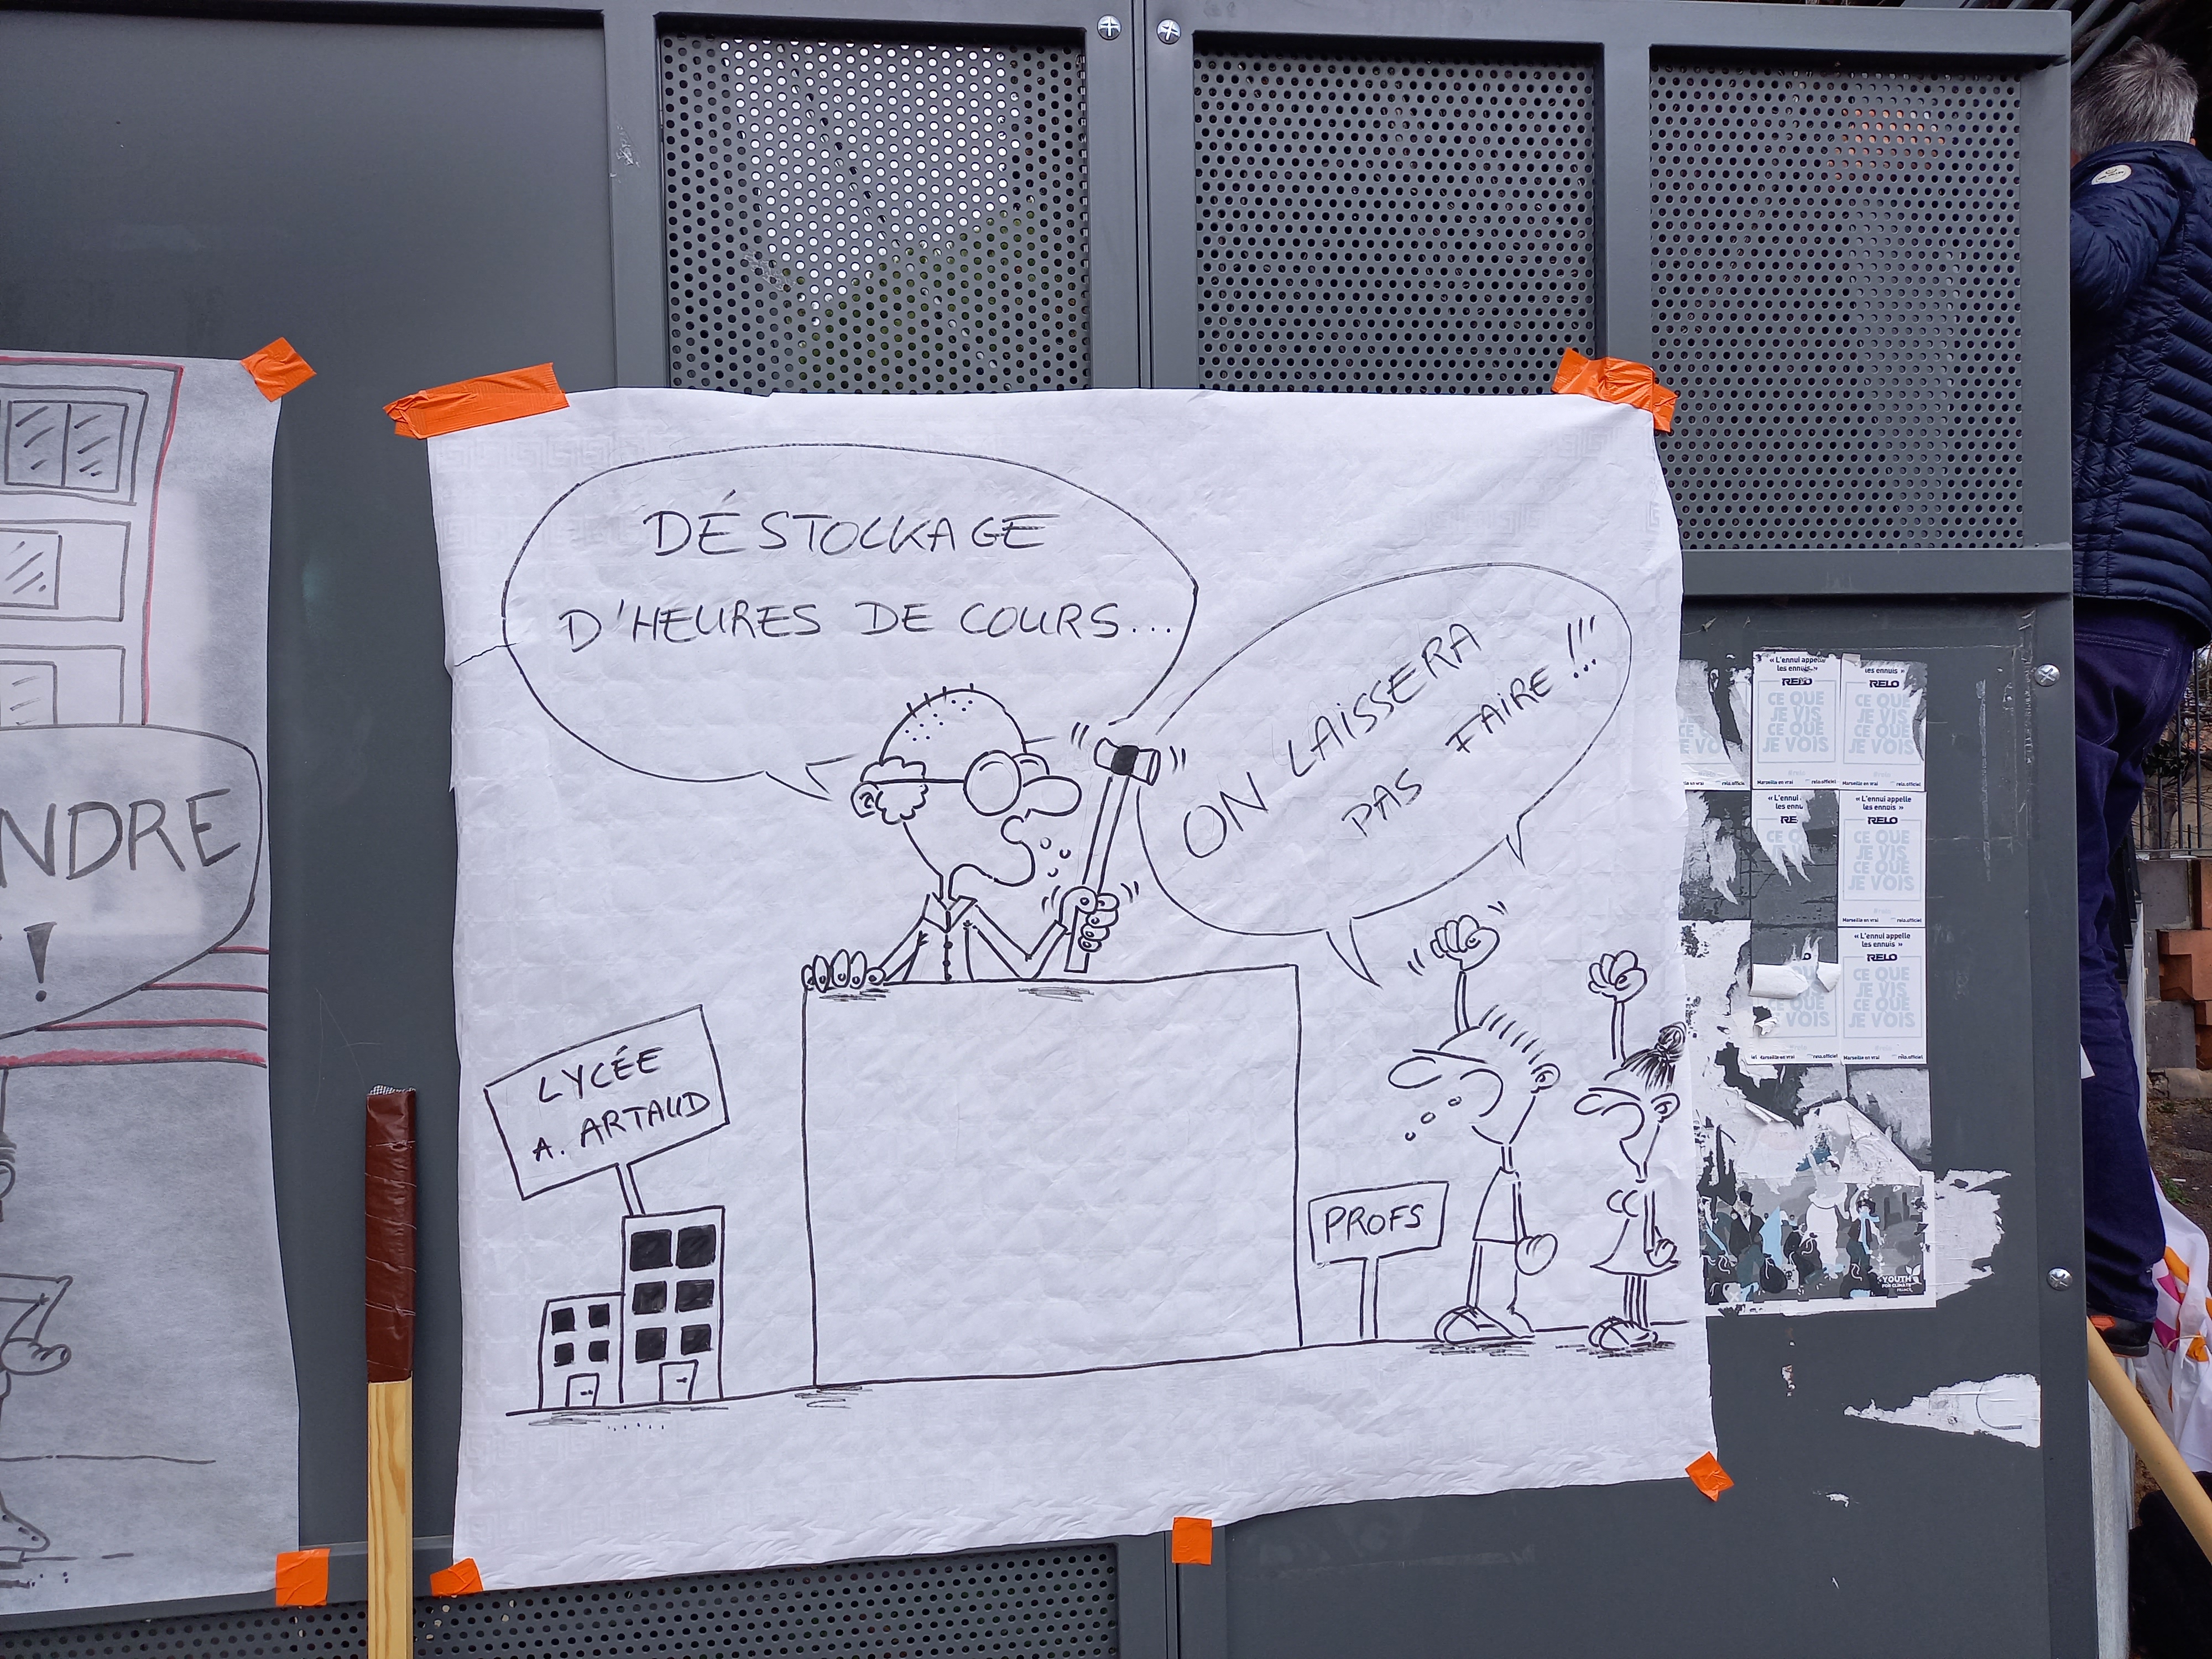 DÉSTOCKAGE
D'HEURES DE COURS...
ON LAISSERA
PAS FAIRE !!!
LYCÉE
A. ARTAUD
PROFS
NDRE
!
« L'ennui appelle
les ennuis »
RELO
CE QUE
JE VIS
CE QUE
JE VOIS
les ennuis »
RELO
CE QUE
JE VIS
CE QUE
JE VOIS
Marseille en vrai
relo.officiel
Marseille en vrai
relo.officiel
« L'ennui appelle
les ennuis »
RELO
CE QUE
JE VIS
CE QUE
JE VOIS
Marseille en vrai
relo.officiel
« L'ennui appelle
les ennuis »
RELO
CE QUE
JE VIS
CE QUE
JE VOIS
Marseille en vrai
relo.officiel
YOUTH
FOR CLIMATE